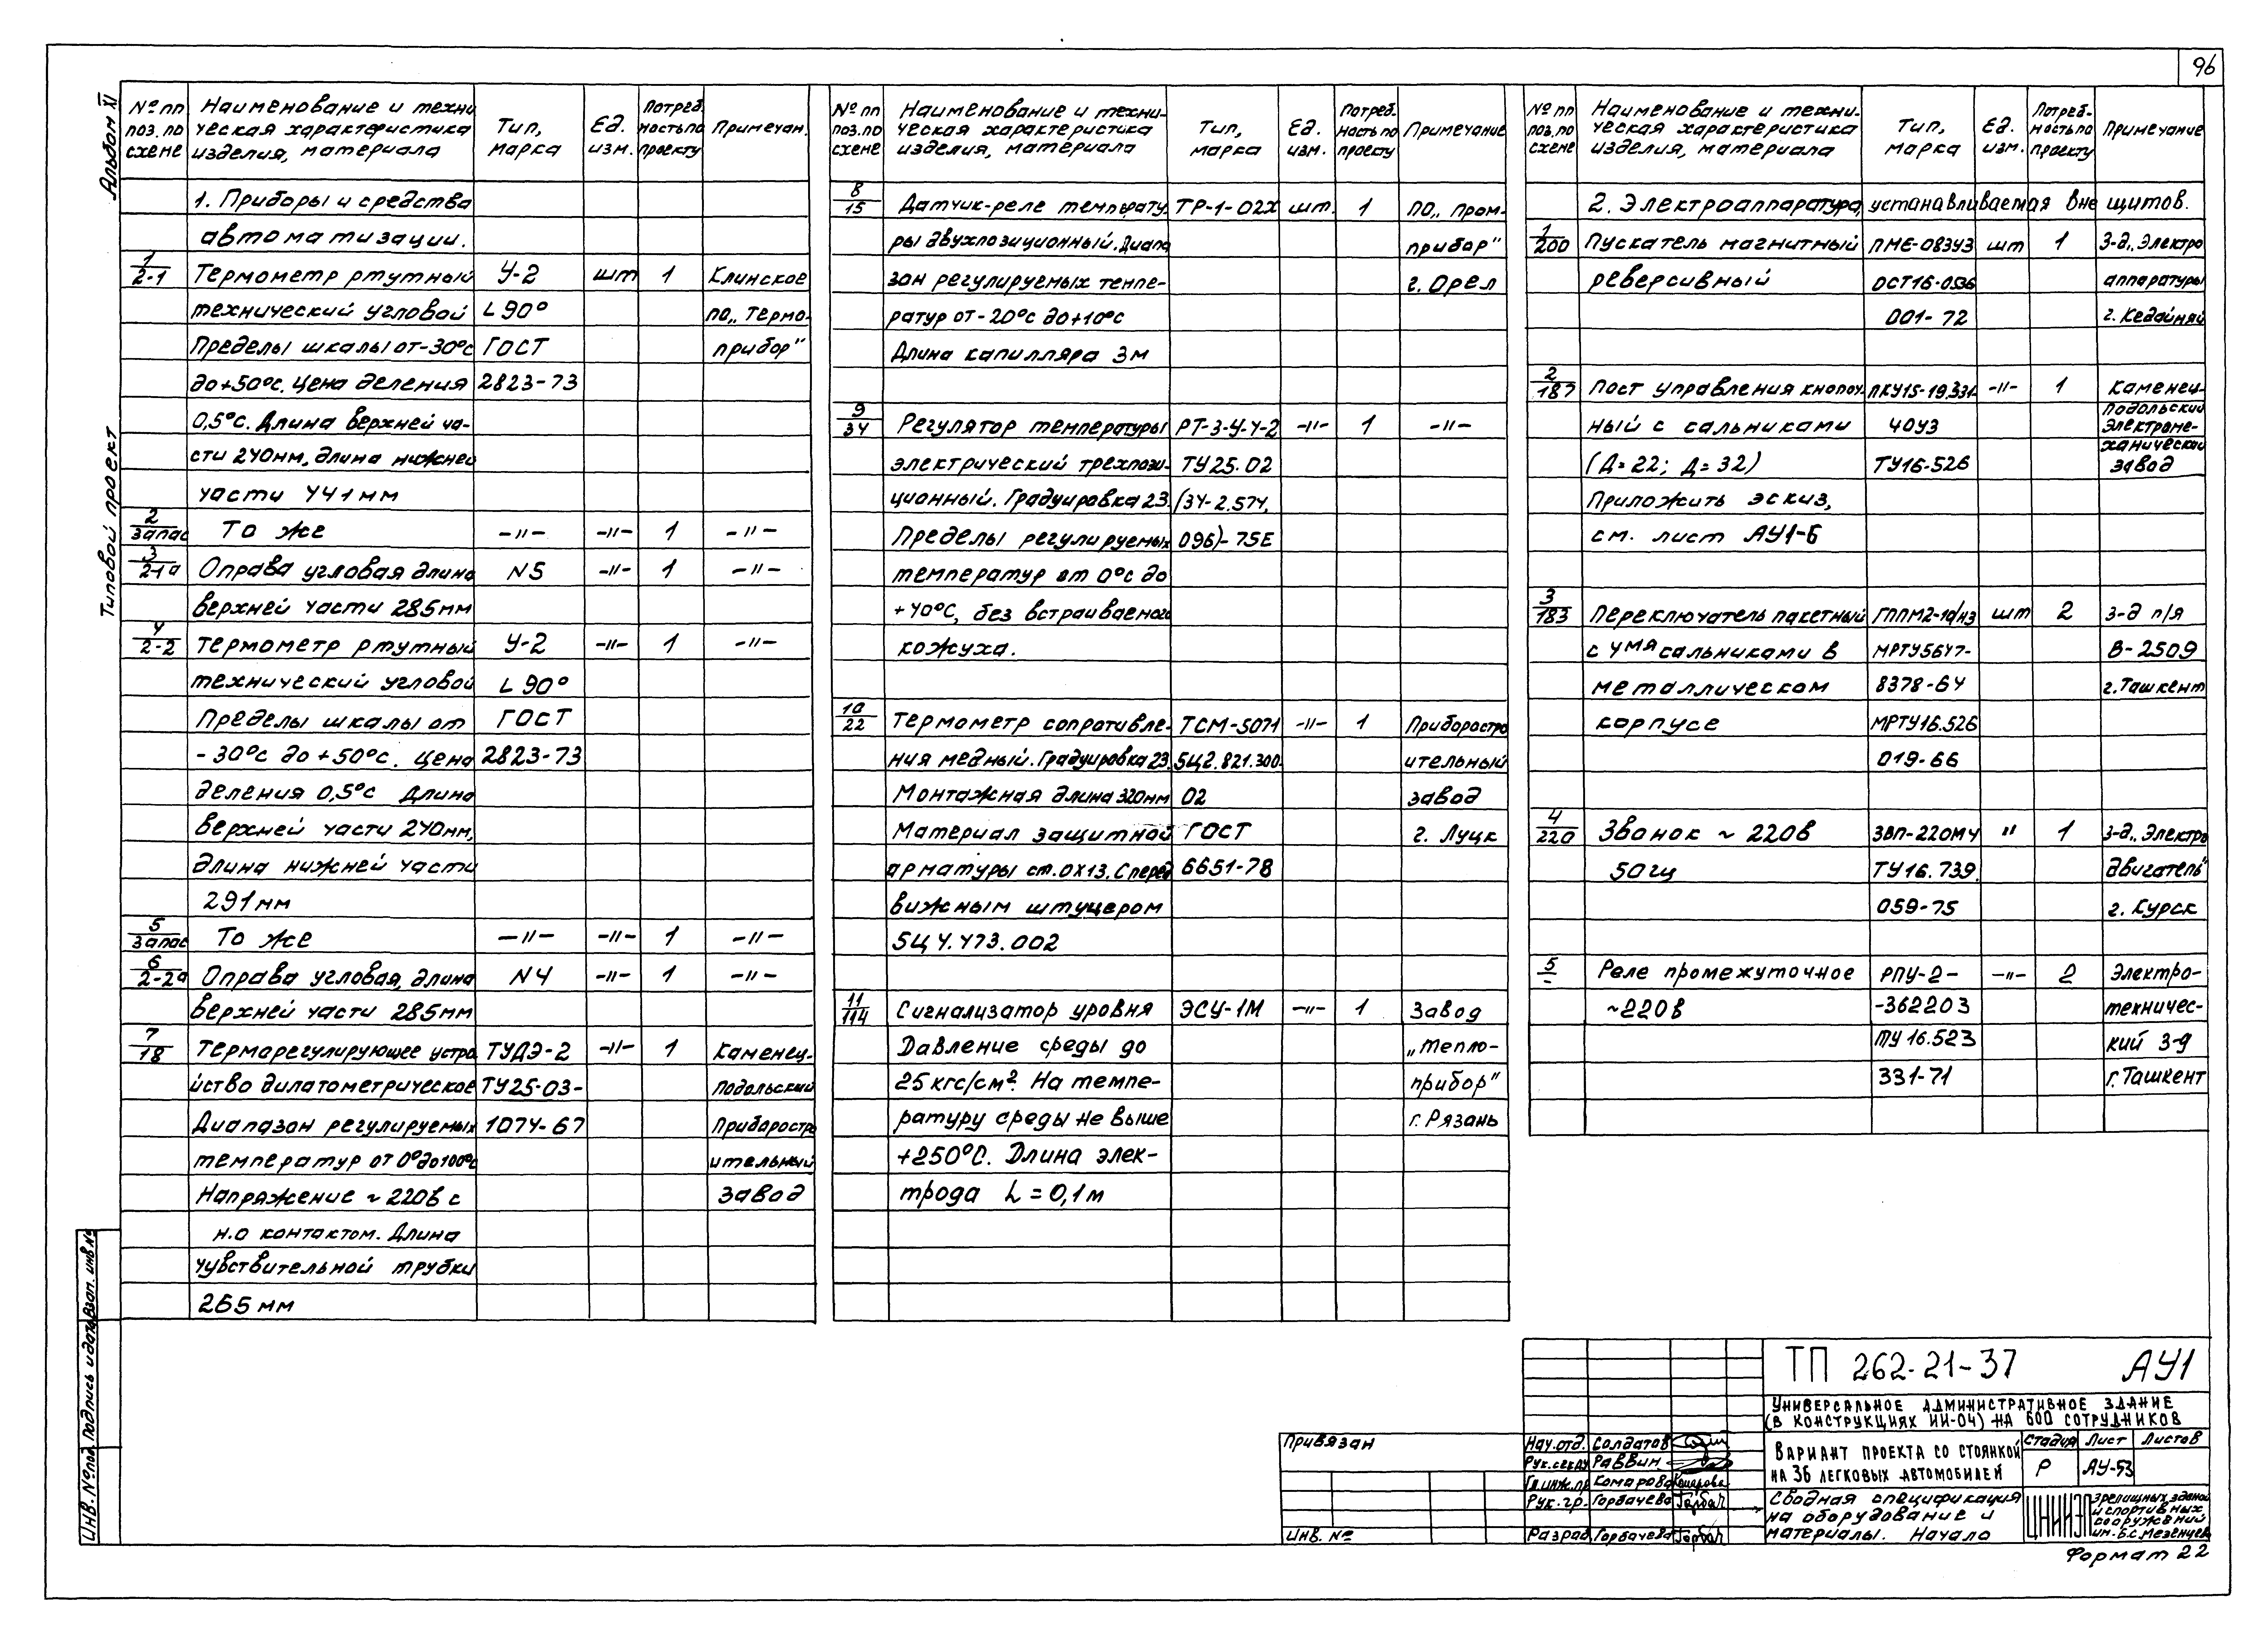 96
Альбом XI
Типовой проект
№ пп поз. по схеме | Наименование и техническая характеристика изделия, материала | Тип, марка | Ед. изм. | Потребность по проекту | Примечан.
1. Приборы и средства
автоматизации.
1/2-1 Термометр ртутный У-2 шт 1 Клинское
технический угловой L 90° по „Термо-
Пределы шкалы от -30°с ГОСТ прибор"
до +50°с. Цена деления 2823-73
0,5°с. Длина верхней ча-
сти 240мм, длина нижней
части 441мм
2/запас То же -"- -"- 1 -"-
3/2-1а Оправа угловая длина N5 -"- 1 -"-
верхней части 285мм
4/2-2 Термометр ртутный У-2 -"- 1 -"-
технический угловой L 90°
Пределы шкалы от ГОСТ
- 30°с до +50°с. Цена 2823-73
деления 0,5°с Длина
верхней части 240мм,
длина нижней части
291мм
5/запас То же -"- -"- 1 -"-
6/2-2а Оправа угловая, длина N4 -"- 1 -"-
верхней части 285мм
7/18 Терморегулирующее устро ТУДЭ-2 -"- 1 Каменец-
йство дилатометрическое ТУ25-03- Подольский
Диапазон регулируемых 1074-67 Приборостро
температур от 0° до 100°с ительный
Напряжение ~ 220в с завод
н.о контактом. Длина
чувствительной трубки
265мм
№ пп поз. по схеме | Наименование и техни-ческая характеристика изделия, материала | Тип, марка | Ед. изм. | Потреб-ность по проекту | Примечание
8/15 Датчик-реле температу- ТР-1-02Х шт. 1 ПО „Пром-
ры двухпозиционный. Диапа прибор"
зон регулируемых темпе- г. Орел
ратур от -20°с до +10°с
Длина капилляра 3м
9/34 Регулятор температуры РТ-3-У-4-2 -"- 1 -"-
электрический трехпози- ТУ25.02
ционный. Градуировка 23. (34-2.574.
Пределы регулируемых 096)-75Е
температур от 0°с до
+40°С, без встраиваемого
кожуха.
10/22 Термометр сопротивле- ТСМ-5071 -"- 1 Приборостро
ния медный. Градуировка 23. 5Ц2.821.300- ительный
Монтажная длина 320мм 02 завод
Материал защитной ГОСТ г. Луцк
арматуры ст. 0Х13. С перед 6651-78
вижным штуцером
5Ц4.473.002
11/114 Сигнализатор уровня ЭСУ-1М -"- 1 Завод
Давление среды до „Тепло-
25 кгс/см². На темпе- прибор"
ратуру среды не выше г. Рязань
+250°С. Длина элек-
трода L = 0,1м
№ пп поз. по схеме | Наименование и техни-ческая характеристика изделия, материала | Тип, марка | Ед. изм. | Потреб-ность по проекту | Примечание
2. Электроаппаратура, устанавливаемая вне щитов.
1/200 Пускатель магнитный ПМЕ-083У3 шт 1 З-д „Электро
реверсивный ОСТ16-0536 аппаратуры
001-72 г. Кедайняй
2/187 Пост управления кнопоч- ПКУ15-19.331- -"- 1 Каменец-
ный с сальниками 40У3 Подольский электроме-
(Д=22; Д=32) ТУ16-526 ханический завод
Приложить эскиз,
см. лист АУ1-6
3/183 Переключатель пакетный ГППМ2-10/Н3 шт 2 З-д п/я
с 4мя сальниками в МРТУ5647- В-2509
металлическом 8378-64 г. Ташкент
корпусе МРТУ16.526
019-66
4/220 Звонок ~ 220в ЗВП-220М4 " 1 З-д „Электро
50гц ТУ16.739. двигатель"
059-75 г. Курск
5/- Реле промежуточное РПУ-2- -"- 2 Электро-
~220в -362203 техничес-
ТУ 16.523 кий з-д
331-71 г. Ташкент
ИНВ. № под. Подпись и дата Взам. инв №
Привязан
Инв. №
Нач.отд. Солдатов
Рук.секц Раввин.
Гл.инж.пр Комарова
Рук.гр. Горбачева
Разраб. Горбачева
ТП 262-21-37 АУ1
Универсальное административное здание
(в конструкциях ИИ-04) на 600 сотрудников
Вариант проекта со стоянкой
на 36 легковых автомобилей
Стадия Лист Листов
Р АУ-53
Сводная спецификация
на оборудование и
материалы. Начало
ЦНИИЭП зрелищных зданий
и спортивных
сооружений
им. Б.С. Мезенцева
Формат 22